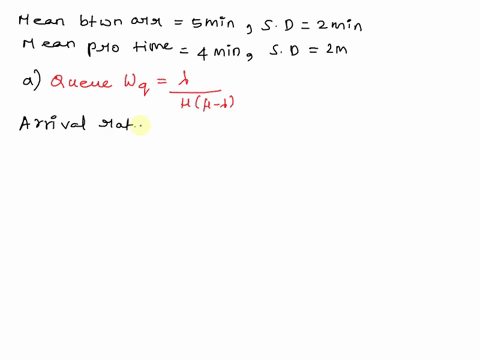 Mean btwn arr = 5min, S.D = 2 min
Mean pro time = 4 min, S.D = 2m
a) Queue Wq = λ / μ(μ-λ)
Arrival rat